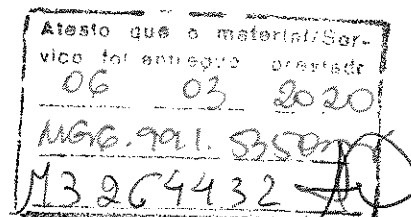 Atesto que o material/Ser-
vico foi entregue prestado
06 03 2020
MG6.991.535
M3264432